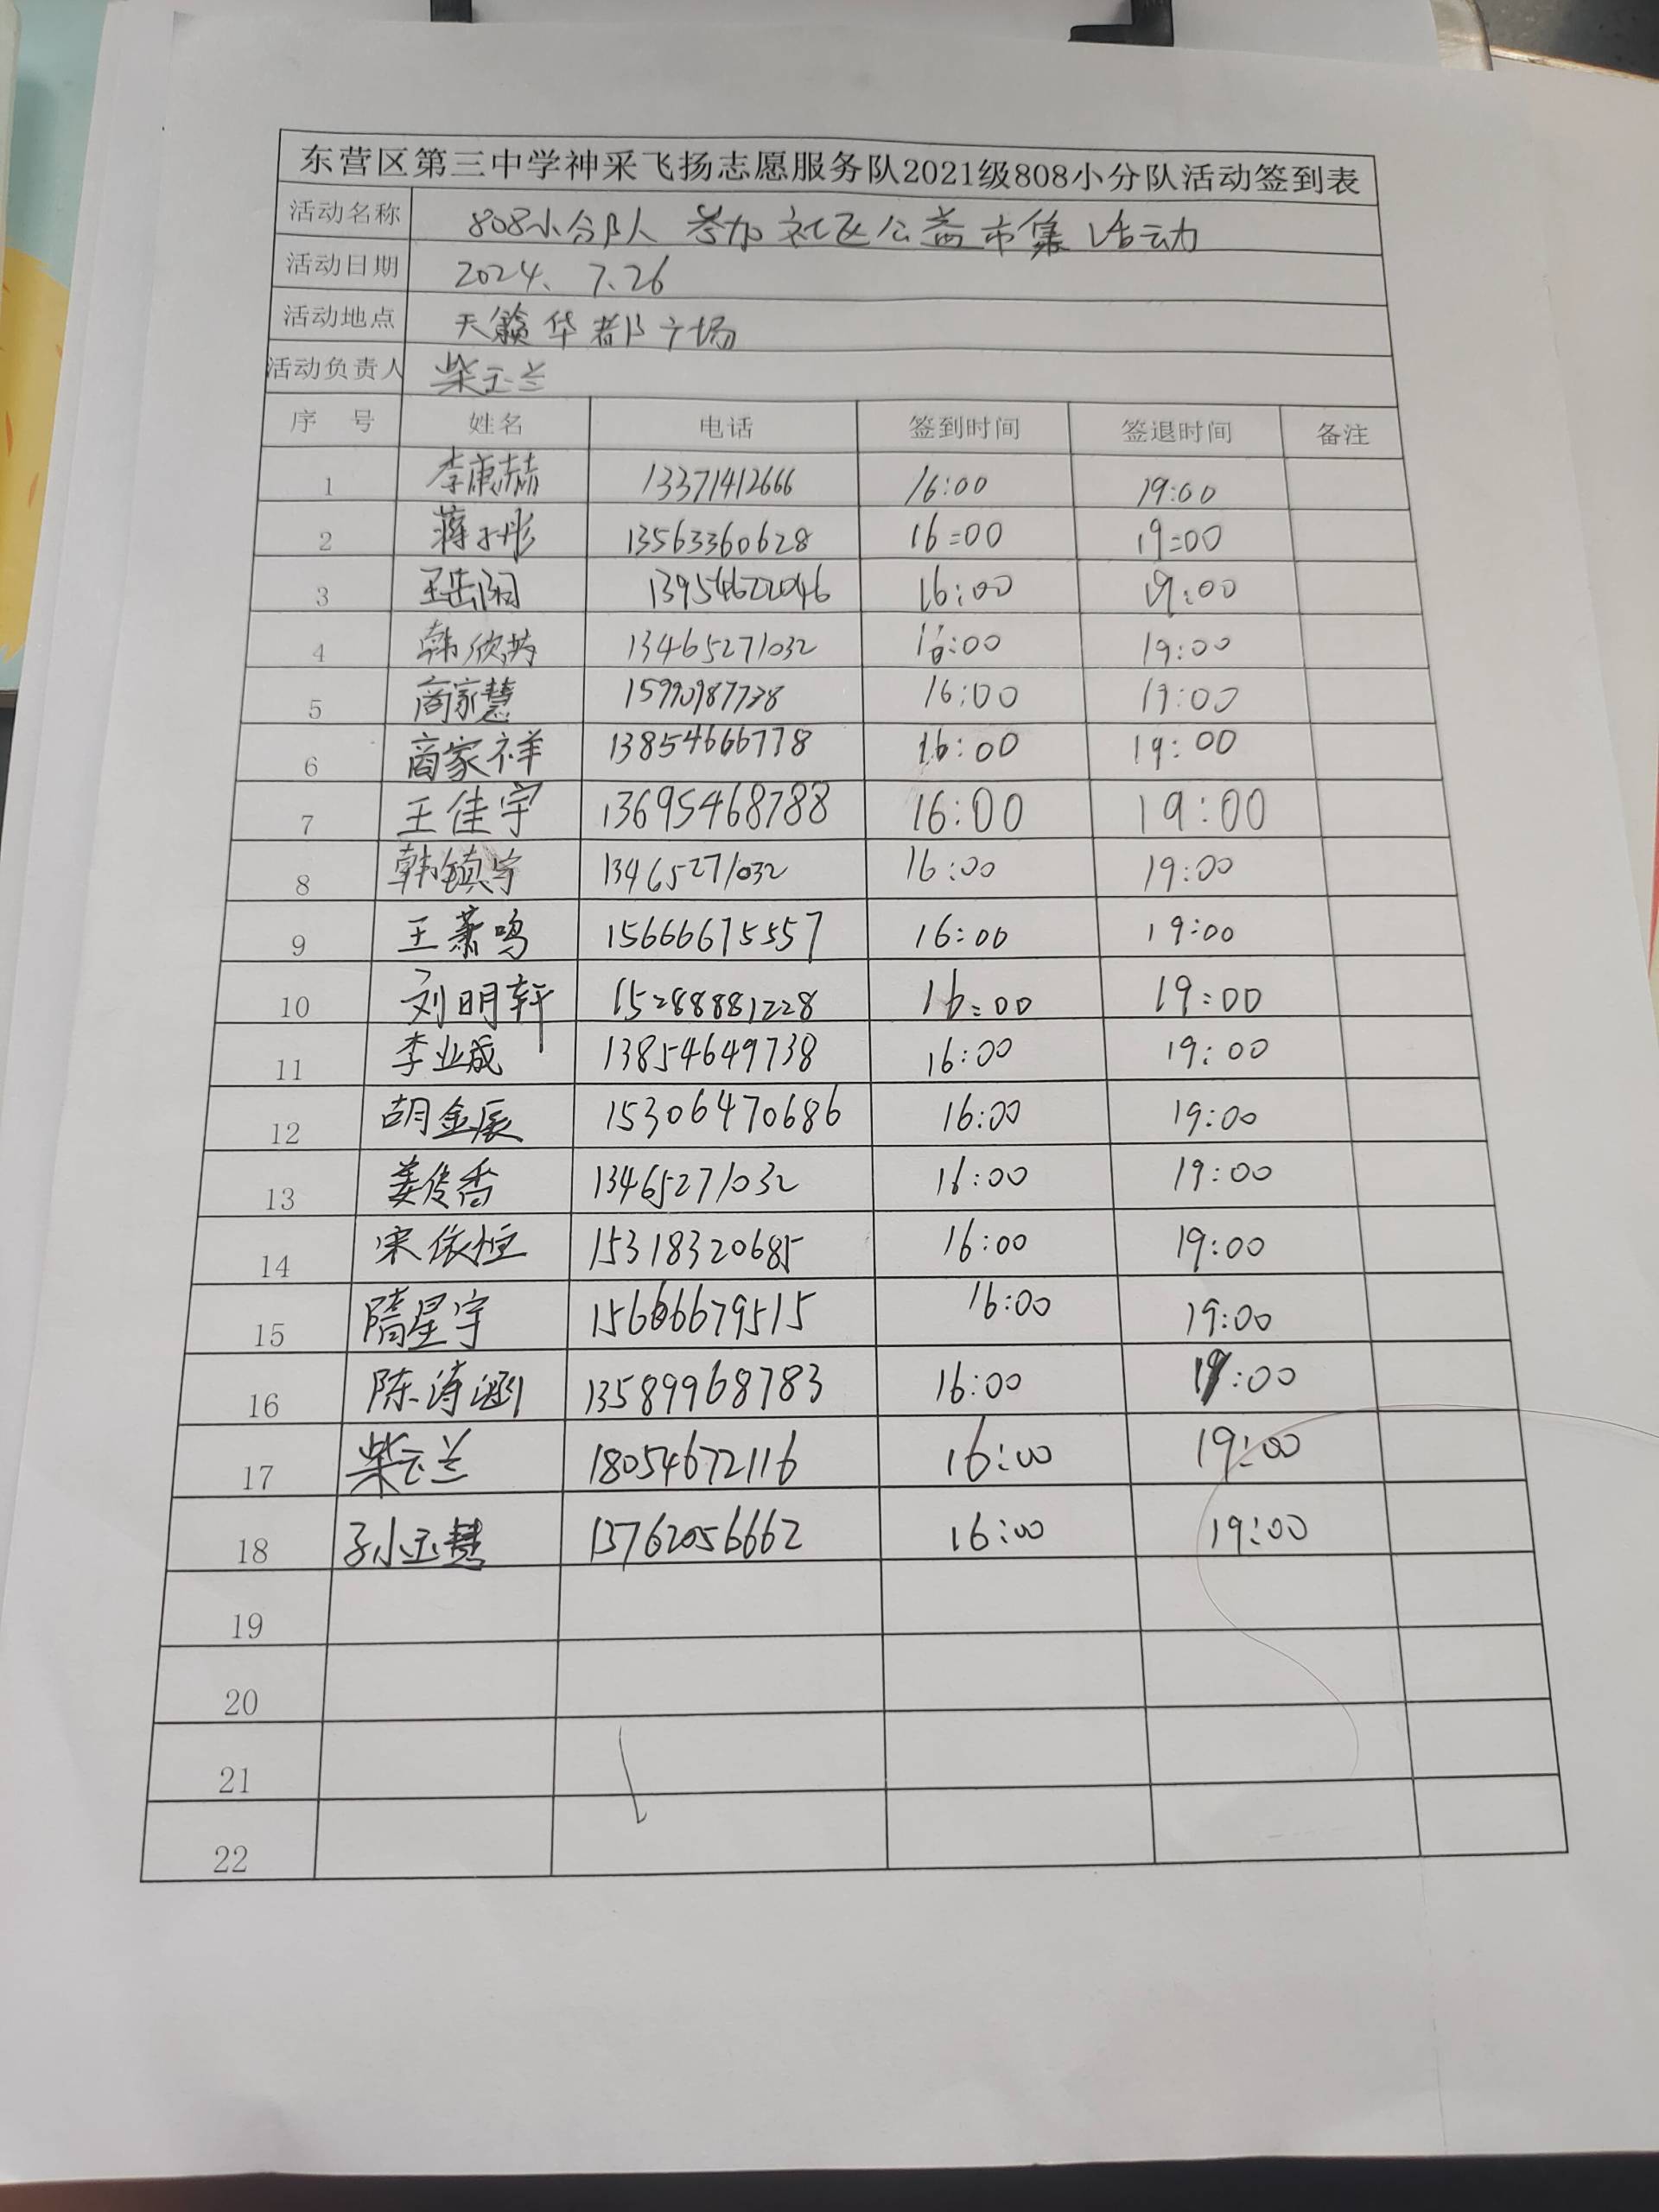 东营区第三中学神采飞扬志愿服务队2021级808小分队活动签到表
活动名称 808小分队 参加社区公益市集活动
活动日期 2024、7、26
活动地点 天籁华都广场
活动负责人 柴玉兰
序 号 姓名 电话 签到时间 签退时间 备注
1 李康喆 13371412666 16:00 19:00
2 蒋子彤 13563360628 16:00 19:00
3 王岳阔 13954622046 16:00 19:00
4 韩欣芮 13465271032 16:00 19:00
5 商家慧 16:00 19:00
6 商家祥 13854666778 16:00 19:00
7 王佳宇 13695468788 16:00 19:00
8 韩镇宇 13465271032 16:00 19:00
9 王萧鸣 15666675557 16:00 19:00
10 刘明轩 15288881228 16:00 19:00
11 李业成 13854649738 16:00 19:00
12 胡金辰 15306470686 16:00 19:00
13 姜传香 13465271032 16:00 19:00
14 宋依恒 15318320685 16:00 19:00
15 隋星宇 15666679515 16:00 19:00
16 陈涛涵 13589968783 16:00 19:00
17 柴玉兰 18054672116 16:00 19:00
18 孙玉慧 13762056662 16:00 19:00
19
20
21
22